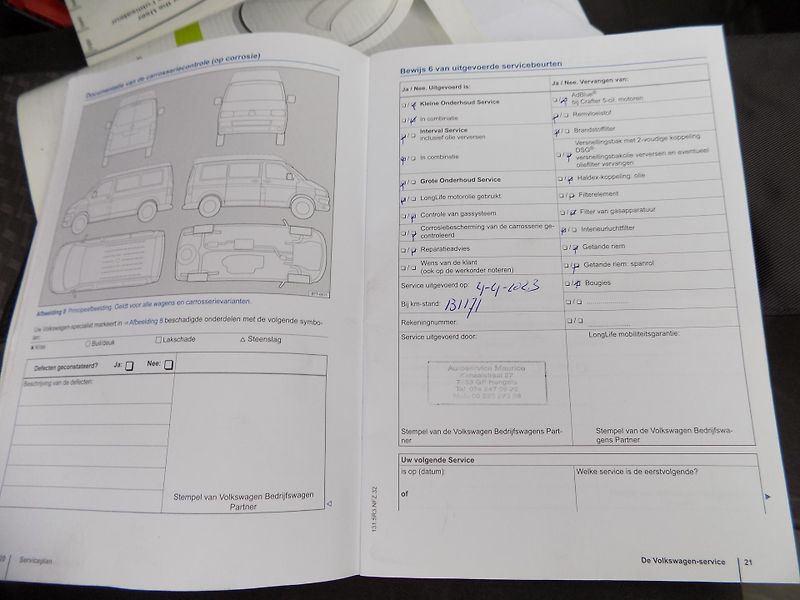 the User
Documentatie van de carrosseriecontrole (op corrosie)
Afbeelding 8 Principeafbeelding. Geldt voor alle wagens en carrosserievarianten.
Uw Volkswagen-specialist markeert in ⇒ Afbeelding 8 beschadigde onderdelen met de volgende symbo-
len:
x Kras ○ Buil/deuk □ Lakschade △ Steenslag
Defecten geconstateerd? Ja: □ Nee: □
Beschrijving van de defecten:
Stempel van Volkswagen Bedrijfswagen
Partner
20 Serviceplan
Bewijs 6 van uitgevoerde servicebeurten
Ja / Nee. Uitgevoerd is:
Kleine Onderhoud Service
In combinatie
Interval Service
inclusief olie verversen
In combinatie
Grote Onderhoud Service
LongLife motorolie gebruikt
Controle van gassysteem
Corrosiebescherming van de carrosserie ge-
controleerd
Reparatieadvies
Wens van de klant
(ook op de werkorder noteren)
Service uitgevoerd op: 4-4-2023
Bij km-stand: 131171
Rekeningnummer:
Ja / Nee. Vervangen van:
AdBlue®
bij Crafter 5-cil. motoren
Remvloeistof
Brandstoffilter
Versnellingsbak met 2-voudige koppeling
DSG®
versnellingsbakolie verversen en eventueel
oliefilter vervangen
Haldex-koppeling: olie
Filterelement
Filter van gasapparatuur
Interieurluchtfilter
Getande riem
Getande riem: spanrol
Bougies
....................
Service uitgevoerd door:
Autoservice Maurice
Kanaalstraat 27
Hengelo
Stempel van de Volkswagen Bedrijfswagens Part-
ner
LongLife mobiliteitsgarantie:
Stempel van de Volkswagen Bedrijfswa-
gens Partner
Uw volgende Service
is op (datum):
of
Welke service is de eerstvolgende?
131.5R3.NFZ.32
De Volkswagen-service 21